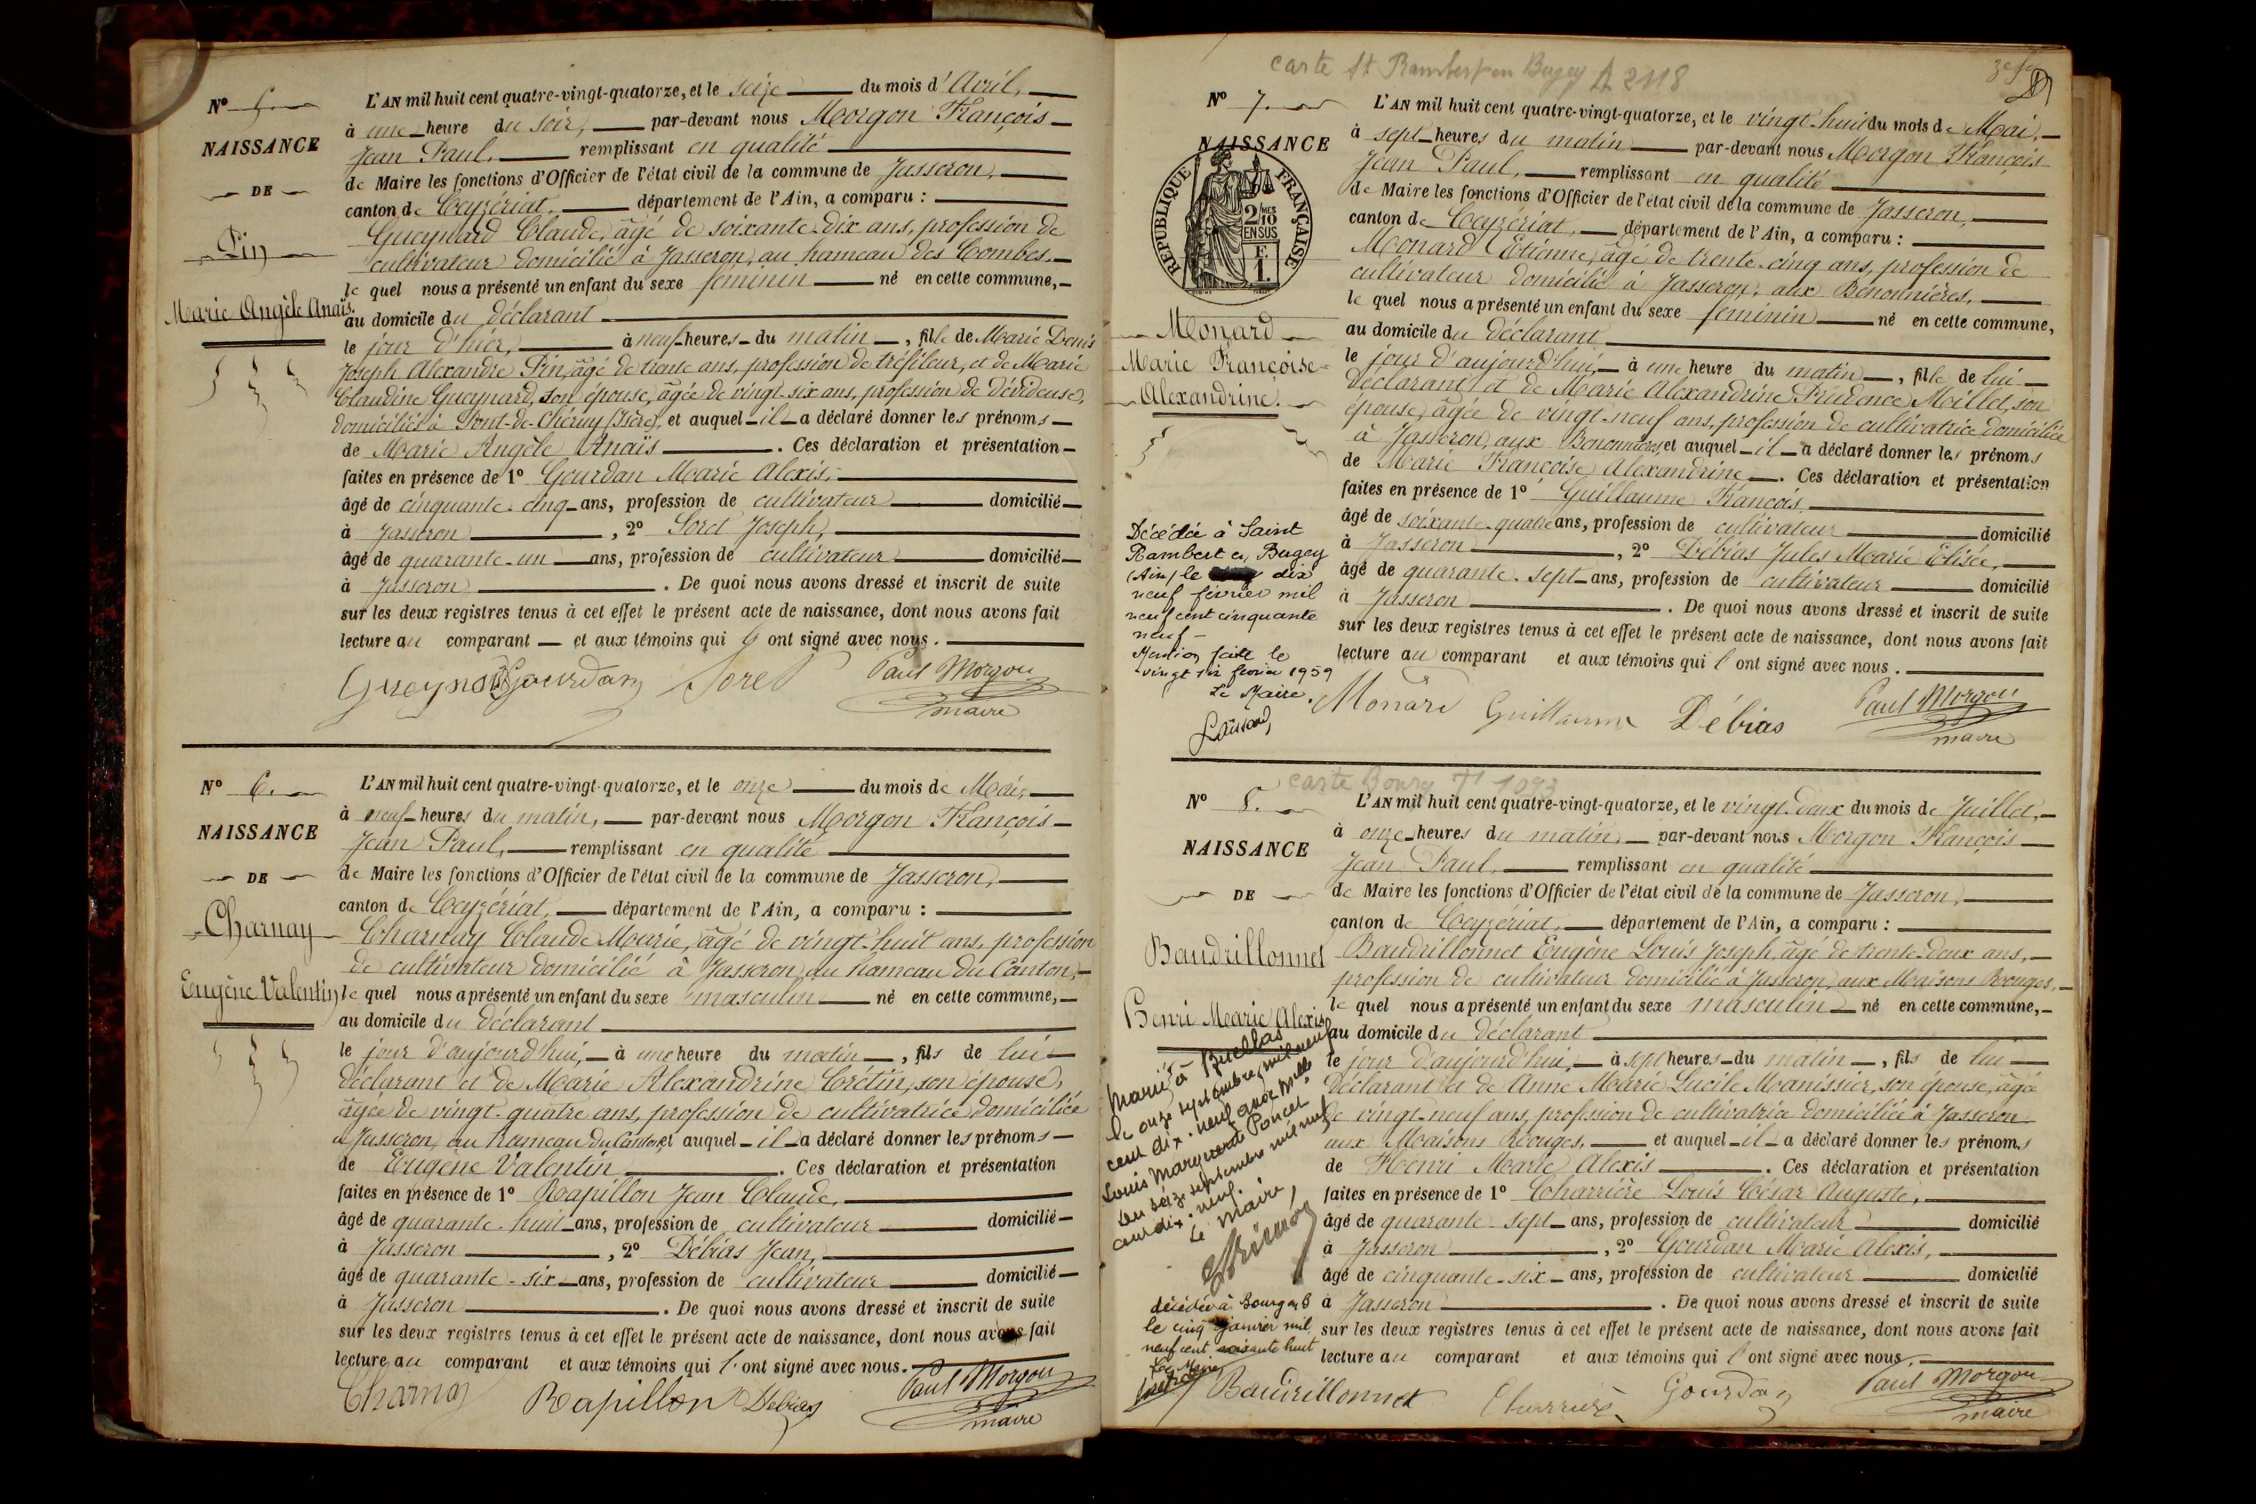 N° 5.
NAISSANCE
DE
Pin
Marie Angèle Anaïs.
L'AN mil huit cent quatre-vingt-quatorze, et le seize du mois d'Avril,
à une heure du soir, par-devant nous Morgon François
Jean Paul, remplissant en qualité
de Maire les fonctions d'Officier de l'état civil de la commune de Jasseron,
canton de Ceyzériat, département de l'Ain, a comparu :
Gueynard Claude, âgé de soixante-dix ans, profession de
cultivateur domicilié à Jasseron, au hameau des Combes.
le quel nous a présenté un enfant du sexe féminin né en cette commune,
au domicile du déclarant
le jour d'hier, à neuf heures du matin, fille de Marie Denis
Joseph Alexandre Pin, âgé de trente ans, profession de tréfileur, et de Marie
Claudine Gueynard, son épouse, âgée de vingt-six ans, profession de dévideuse,
domiciliés à Pont-de-Chéruy (Isère), et auquel il a déclaré donner les prénoms
de Marie Angèle Anaïs. Ces déclaration et présentation
faites en présence de 1° Gourdan Marie Alexis,
âgé de cinquante-cinq ans, profession de cultivateur domicilié
à Jasseron, 2° Soret Joseph,
âgé de quarante-un ans, profession de cultivateur domicilié
à Jasseron. De quoi nous avons dressé et inscrit de suite
sur les deux registres tenus à cet effet le présent acte de naissance, dont nous avons fait
lecture au comparant et aux témoins qui l'ont signé avec nous.
Gueynard Gourdan Soret Paul Morgon
maire
N° 6.
NAISSANCE
DE
Charnay
Eugène Valentin
L'AN mil huit cent quatre-vingt-quatorze, et le onze du mois de Mai,
à neuf heures du matin, par-devant nous Morgon François
Jean Paul, remplissant en qualité
de Maire les fonctions d'Officier de l'état civil de la commune de Jasseron,
canton de Ceyzériat, département de l'Ain, a comparu :
Charnay Claude Marie, âgé de vingt-huit ans, profession
de cultivateur domicilié à Jasseron, au hameau du Canton,
le quel nous a présenté un enfant du sexe masculin né en cette commune,
au domicile du déclarant
le jour d'aujourd'hui, à une heure du matin, fils de lui
déclarant et de Marie Alexandrine Crétin, son épouse,
âgée de vingt-quatre ans, profession de cultivatrice domiciliée
à Jasseron, au hameau du Canton, et auquel il a déclaré donner les prénoms
de Eugène Valentin. Ces déclaration et présentation
faites en présence de 1° Rapillon Jean Claude,
âgé de quarante-huit ans, profession de cultivateur domicilié
à Jasseron, 2° Débias Jean,
âgé de quarante-six ans, profession de cultivateur domicilié
à Jasseron. De quoi nous avons dressé et inscrit de suite
sur les deux registres tenus à cet effet le présent acte de naissance, dont nous avons fait
lecture au comparant et aux témoins qui l'ont signé avec nous.
Charnay Rapillon Débias Paul Morgon
maire
carte St Rambert en Bugey A 2118
N° 7.
NAISSANCE
REPUBLIQUE FRANÇAISE
2/10 EN SUS
1 F
Monard
Marie Françoise
Alexandrine.
Décédée à Saint
Rambert en Bugey
(Ain) le dix
neuf février mil
neuf cent cinquante
neuf
Mention faite le
vingt six février 1959
Le Maire.
L'AN mil huit cent quatre-vingt-quatorze, et le vingt-huit du mois de Mai,
à sept heures du matin par-devant nous Morgon François
Jean Paul, remplissant en qualité
de Maire les fonctions d'Officier de l'état civil de la commune de Jasseron,
canton de Ceyzériat, département de l'Ain, a comparu :
Monard Etienne, âgé de trente-cinq ans, profession de
cultivateur domicilié à Jasseron, aux Bénonnières,
le quel nous a présenté un enfant du sexe féminin né en cette commune,
au domicile du déclarant
le jour d'aujourd'hui, à une heure du matin, fille de lui
déclarant et de Marie Alexandrine Prudence Moillet, son
épouse, âgée de vingt-neuf ans, profession de cultivatrice domiciliée
à Jasseron, aux Bénonnières, et auquel il a déclaré donner les prénoms
de Marie Françoise Alexandrine. Ces déclaration et présentation
faites en présence de 1° Guillaume François,
âgé de soixante-quatre ans, profession de cultivateur domicilié
à Jasseron, 2° Débias Jules Marie Elisée,
âgé de quarante-sept ans, profession de cultivateur domicilié
à Jasseron. De quoi nous avons dressé et inscrit de suite
sur les deux registres tenus à cet effet le présent acte de naissance, dont nous avons fait
lecture au comparant et aux témoins qui l'ont signé avec nous.
Monard Guillaume Débias Paul Morgon
maire
carte Bourg 1093
N° 8.
NAISSANCE
DE
Baudrillonnet
Henri Marie Alexis
Marié à Buellas
le onze septembre mil neuf
cent dix-neuf avec Melle
Louis Marguerite Poncet
Le seize septembre mil neuf
cent dix-neuf.
Le Maire,
décédé à Bourg en B
le cinq janvier mil
neuf cent soixante huit
Le Maire
L'AN mil huit cent quatre-vingt-quatorze, et le vingt-deux du mois de Juillet,
à onze heures du matin, par-devant nous Morgon François
Jean Paul, remplissant en qualité
de Maire les fonctions d'Officier de l'état civil de la commune de Jasseron,
canton de Ceyzériat, département de l'Ain, a comparu :
Baudrillonnet Eugène Louis Joseph, âgé de trente-deux ans,
profession de cultivateur domicilié à Jasseron, aux Maisons Rouges,
le quel nous a présenté un enfant du sexe masculin né en cette commune,
au domicile du déclarant
le jour d'aujourd'hui, à sept heures du matin, fils de lui
déclarant et de Anne Marie Lucile Manissier, son épouse, âgée
de vingt-neuf ans, profession de cultivatrice domiciliée à Jasseron
aux Maisons Rouges, et auquel il a déclaré donner les prénoms
de Henri Marie Alexis. Ces déclaration et présentation
faites en présence de 1° Charrière Louis César Auguste,
âgé de quarante-sept ans, profession de cultivateur domicilié
à Jasseron, 2° Gourdan Marie Alexis,
âgé de cinquante-six ans, profession de cultivateur domicilié
à Jasseron. De quoi nous avons dressé et inscrit de suite
sur les deux registres tenus à cet effet le présent acte de naissance, dont nous avons fait
lecture au comparant et aux témoins qui l'ont signé avec nous.
Baudrillonnet Charrière Gourdan Paul Morgon
maire